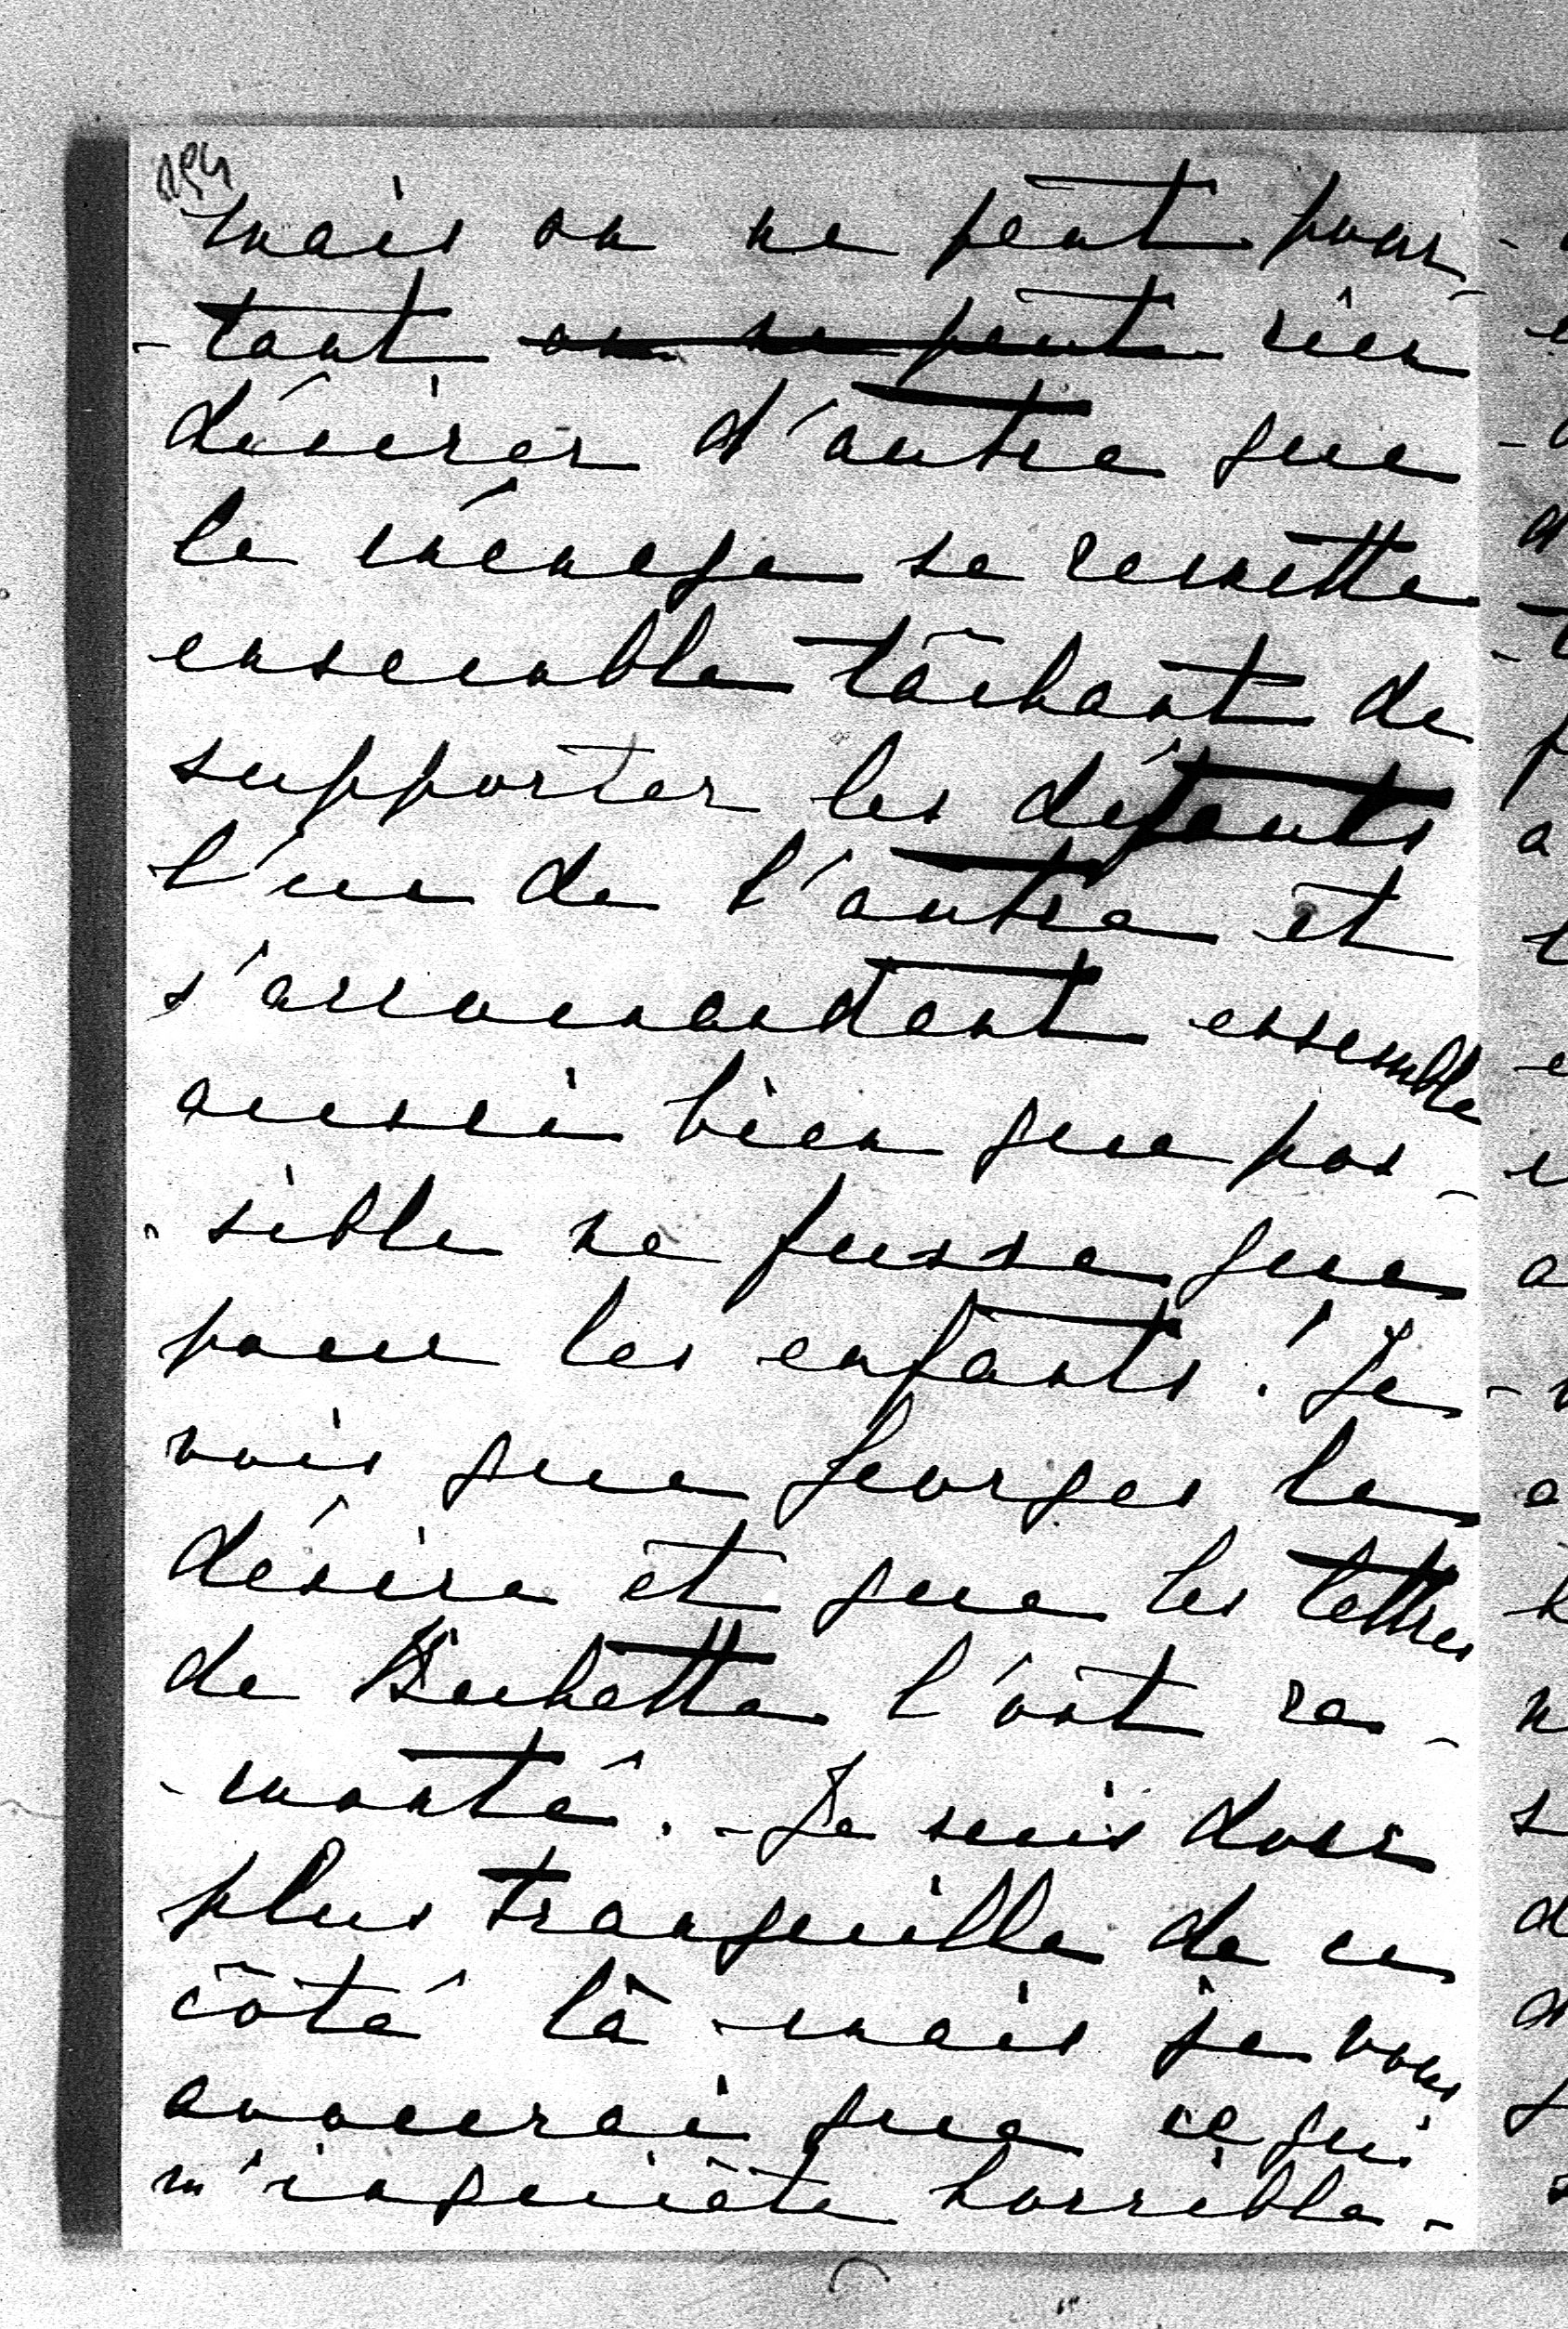 mais on ne peut pour-
-tant on ne peut rien
désirer d'autre que
le ménage se remette
ensemble tâchant de
supporter les défauts
l'un de l'autre et
s'accomodant ensemble
aussi bien que pos-
-sible ne fusse que
pour les enfants! Je
vois que Georges le
désire et que les lettres
de l'ont re-
-monté. - Je suis donc
plus tranquille de ce
côté là mais je vous
avouerai que ce qui
m'inquiète horrible-